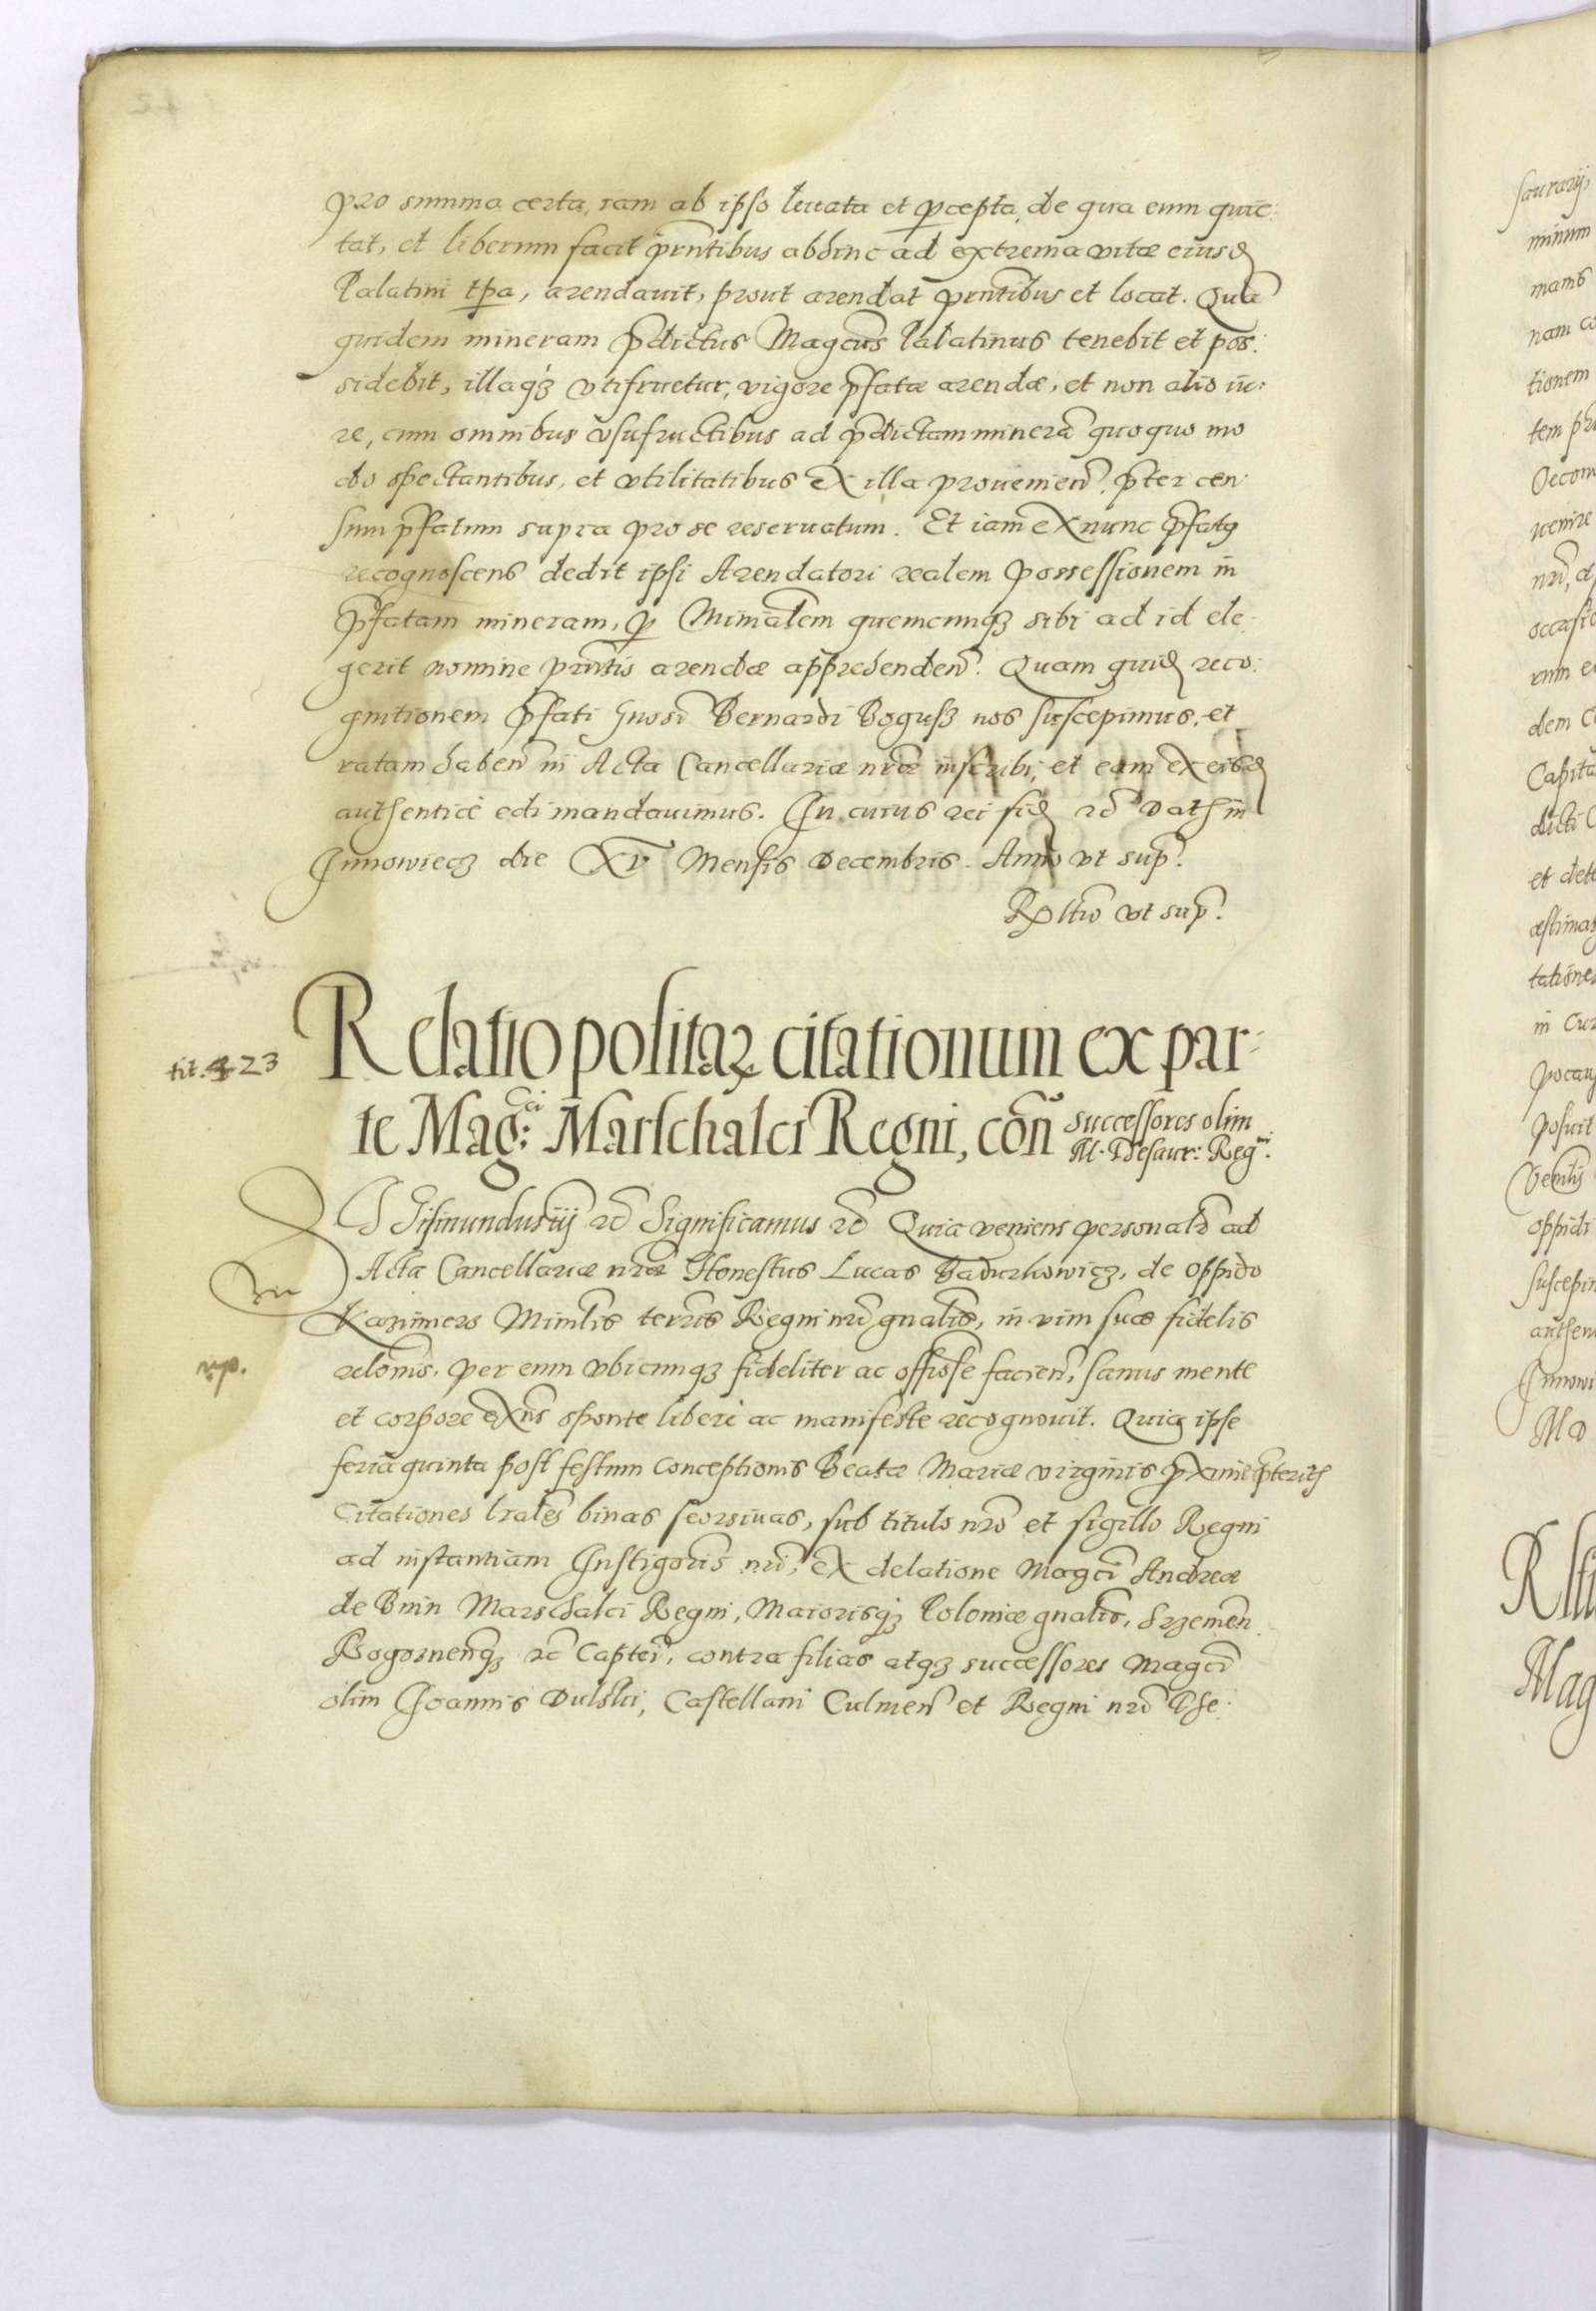 pro summa certa, iam ab ipso leuata et pcepta, de qua eum quie:
tat, et liberum facit prntibus abhinc ad extrema vitæ eiusd
Palatini tpa, arendauit, prout arendat prntibus et locat. Quã
quidem mineram pdictus Magcus Palatinus tenebit et pos:
sidebit, illaqz vtifruetur, vigore pfatæ arendæ, et non alio iu:
re, cum omnibus vsufructibus ad pdictam minerã quoquo mo
do spectantibus, et vtilitatibus ex illa prouenien. pter cen
sum pfatum supra pro se reseruatum. Et iam ex nunc pfatg
recognoscens dedit ipsi Arendatori realem possessionem in
pfatam mineram, p Minialem quemcunqz sibi ad id ele
gerit nomine prntis arendæ apprehenden. Quam quid reco:
gnitionem pfati Gnosi Bernardi Bogusz nos suscepimus, et
ratam haben in Acta Cancellariæ nræ inscribi, et eam ex eisd
authenticè edi mandauimus. In cuius rei fid rc Dat in
Innowiecz die XV Mensis Decembris. Anno vt sup.
Rltio vt sup.
Relatio positaz citationum ex par-
tit. 423
te Mag:ci Marschalci Regni, con successores olim
M. Thesaur: Regni.
Sigismundus iij rc Significamus rc Quia veniens personalr ad
Acta Cancellariæ nræ Honestus Lucas de oppido
Kazimers Minlis terris Regni nri gnalis, in vim suæ fidelis
rlonis, per eum vbicunqz fideliter ac offiose facien, sanus mente
rep.
et corpore exns sponte liberè ac manifeste recognouit. Quia ipse
feria quinta post festum Conceptionis Beatæ Mariæ virginis pxime pterith
Citationes lrales binas seorsiuas, sub titulo nro et sigillo Regni
ad instantiam Instigoris nri, ex delatione Magci Andreæ
de Bnin Marschalci Regni, Maiorisqz Poloniæ gnalis, Srzemen
Rogoznenqz rc Captei, contra filias atqz successores Magci
olim Ioannis Dulski, Castellani Culmen et Regni nri The: